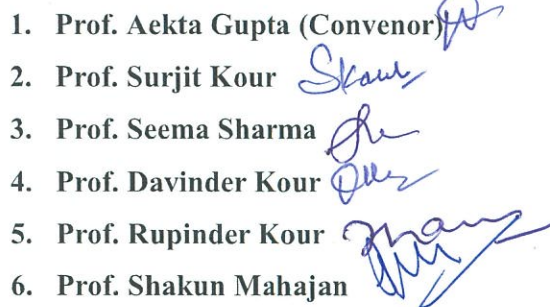 1. Prof. Aekta Gupta (Convenor)
2. Prof. Surjit Kour Skour
3. Prof. Seema Sharma
4. Prof. Davinder Kour
5. Prof. Rupinder Kour
6. Prof. Shakun Mahajan